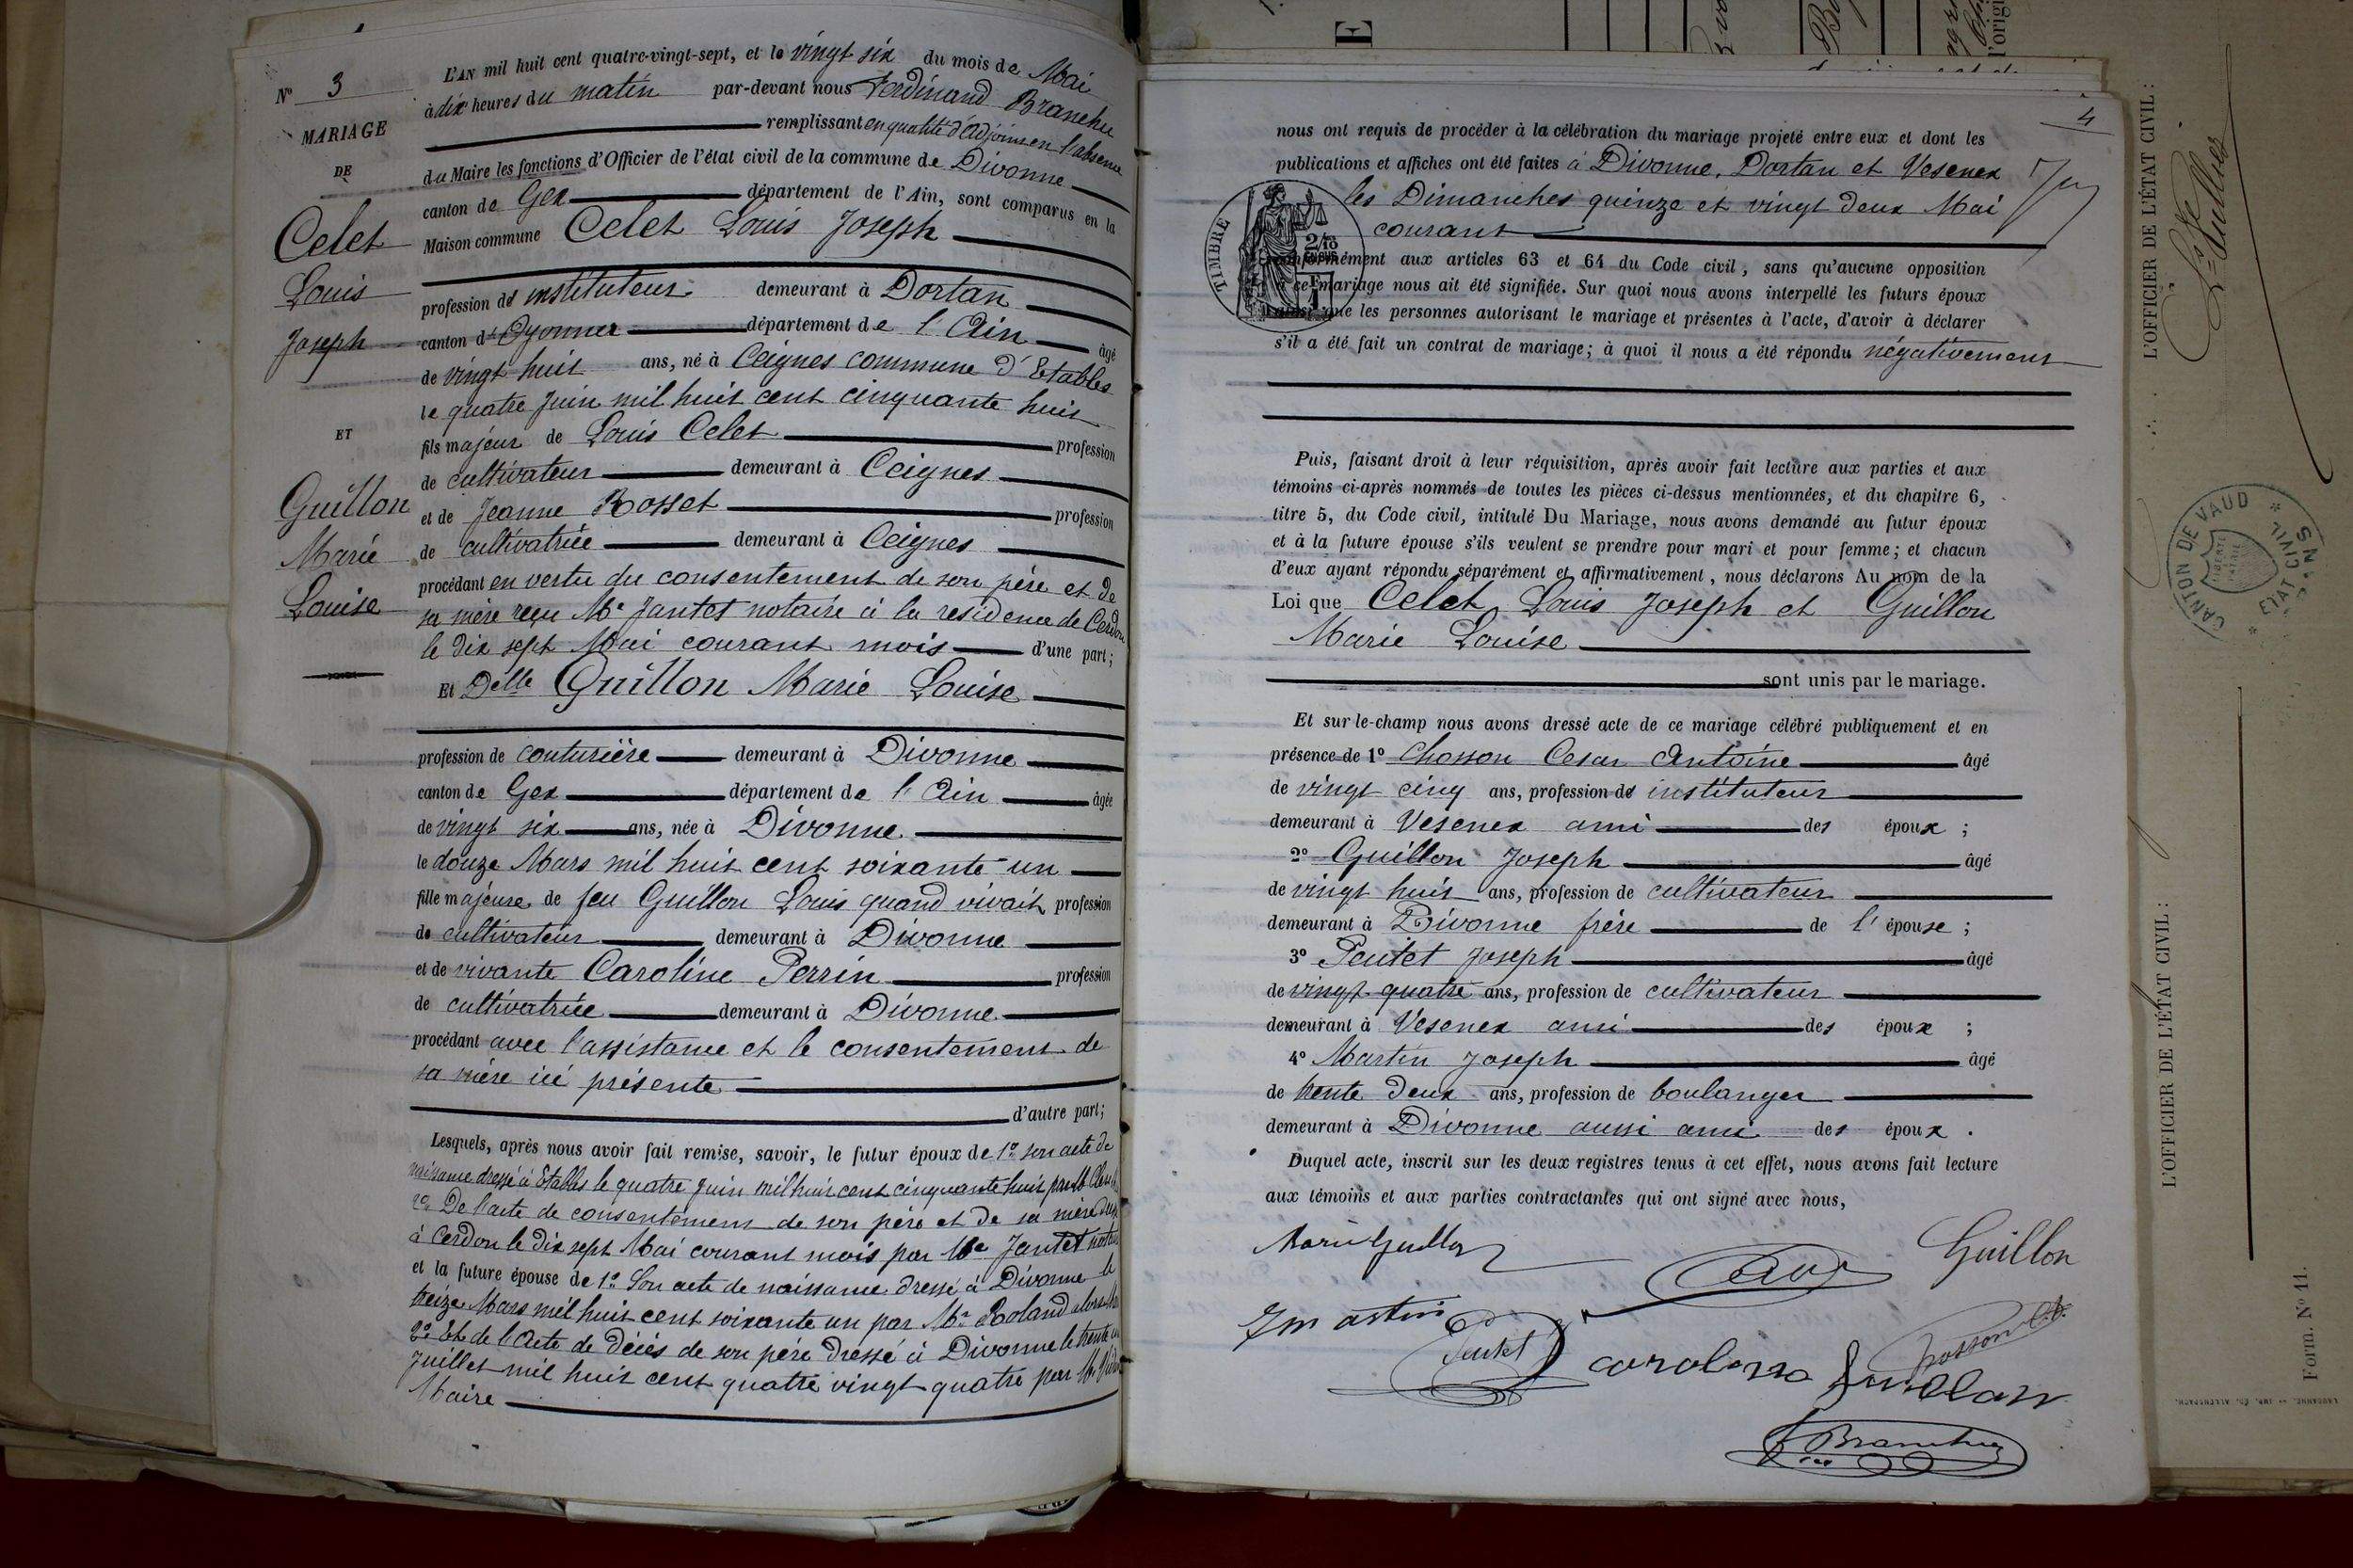 N° 3
MARIAGE
DE
Celet
Louis
Joseph
ET
Guillon
Marie
Louise
L'AN mil huit cent quatre-vingt-sept, et le vingt six du mois de Mai
à dix heures du matin par-devant nous Ferdinand Branchu
remplissant en qualité d'adjoint en l'absence
du Maire les fonctions d'Officier de l'état civil de la commune de Divonne
canton de Gex département de l'Ain, sont comparus en la
Maison commune Celet Louis Joseph
profession d' instituteur demeurant à Dortan
canton d' Oyonnax département de l'Ain âgé
de vingt huit ans, né à Ceignes commune d'Etables
le quatre juin mil huit cent cinquante huit
fils majeur de Louis Celet profession
de cultivateur demeurant à Ceignes
et de Jeanne Rosset profession
de cultivatrice demeurant à Ceignes
procédant en vertu du consentement de son père et de
sa mère reçu Me Jantet notaire à la résidence de Cerdon
le dix sept Mai courant mois d'une part;
Et Delle Guillon Marie Louise
profession de couturière demeurant à Divonne
canton de Gex département de l'Ain âgée
de vingt six ans, née à Divonne
le douze Mars mil huit cent soixante un
fille majeure de feu Guillon Louis quand vivait profession
de cultivateur demeurant à Divonne
et de vivante Caroline Perrin profession
de cultivatrice demeurant à Divonne
procédant avec l'assistance et le consentement de
sa mère ici présente
d'autre part;
Lesquels, après nous avoir fait remise, savoir, le futur époux de 1° son acte de
naissance dressé à Etables le quatre juin mil huit cent cinquante huit par Mr
2° De l'acte de consentement de son père et de sa mère
à Cerdon le dix sept Mai courant mois par Me Jantet
et la future épouse de 1° Son acte de naissance dressé à Divonne le
treize Mars mil huit cent soixante un par Mr Roland alors
2° Et de l'acte de décès de son père dressé à Divonne le trente
Juillet mil huit cent quatre vingt quatre par Mr
Maire
4
nous ont requis de procéder à la célébration du mariage projeté entre eux et dont les
publications et affiches ont été faites à Divonne, Dortan et Vesenex
les Dimanches quinze et vingt deux Mai
courant
TIMBRE
conformément aux articles 63 et 64 du Code civil, sans qu'aucune opposition
à ce mariage nous ait été signifiée. Sur quoi nous avons interpellé les futurs époux
ainsi que les personnes autorisant le mariage et présentes à l'acte, d'avoir à déclarer
s'il a été fait un contrat de mariage; à quoi il nous a été répondu négativement
Puis, faisant droit à leur réquisition, après avoir fait lecture aux parties et aux
témoins ci-après nommés de toutes les pièces ci-dessus mentionnées, et du chapitre 6,
titre 5, du Code civil, intitulé Du Mariage, nous avons demandé au futur époux
et à la future épouse s'ils veulent se prendre pour mari et pour femme; et chacun
d'eux ayant répondu séparément et affirmativement, nous déclarons Au nom de la
Loi que Celet Louis Joseph et Guillon
Marie Louise
sont unis par le mariage.
Et sur-le-champ nous avons dressé acte de ce mariage célébré publiquement et en
présence de 1° Chosson Cesar Antoine âgé
de vingt cinq ans, profession d' instituteur
demeurant à Vesenex ami des époux ;
2° Guillon Joseph âgé
de vingt huit ans, profession de cultivateur
demeurant à Divonne frère de l'épouse ;
3° Pentet Joseph âgé
de vingt quatre ans, profession de cultivateur
demeurant à Vesenex ami des époux ;
4° Martin Joseph âgé
de trente deux ans, profession de boulanger
demeurant à Divonne aussi ami des époux .
Duquel acte, inscrit sur les deux registres tenus à cet effet, nous avons fait lecture
aux témoins et aux parties contractantes qui ont signé avec nous,
Marie Guillon
Guillon
J Martin
Pentet
Chosson C.A.
F Branchu
L'OFFICIER DE L'ÉTAT CIVIL :
L'OFFICIER DE L'ÉTAT CIVIL :
CANTON DE VAUD
ETAT CIVIL
Form. N° 11.